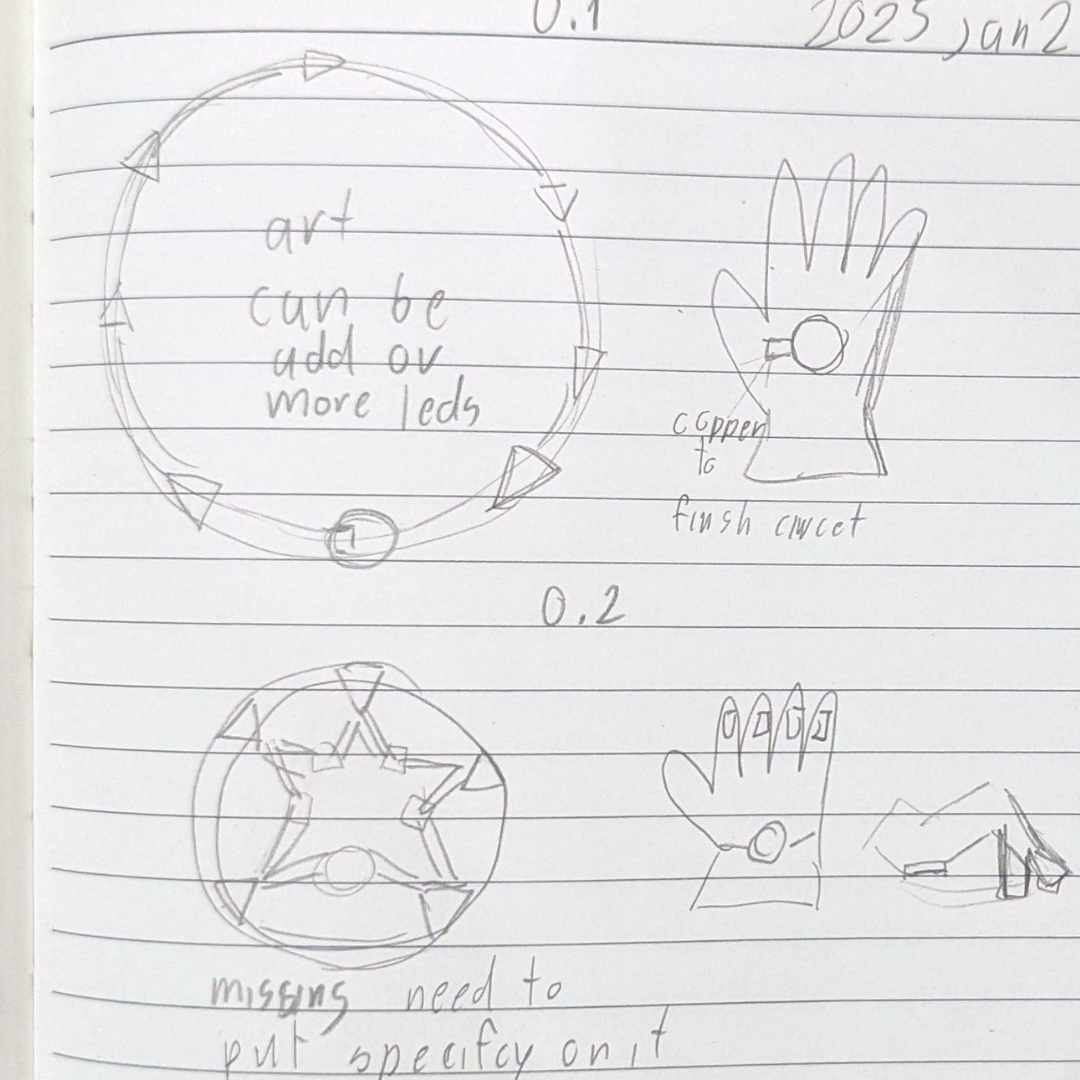 0.1
2025 jan 2
art
can be
add or
more leds
copper
to
finsh circet
0.2
missing need to
put specifcy on it